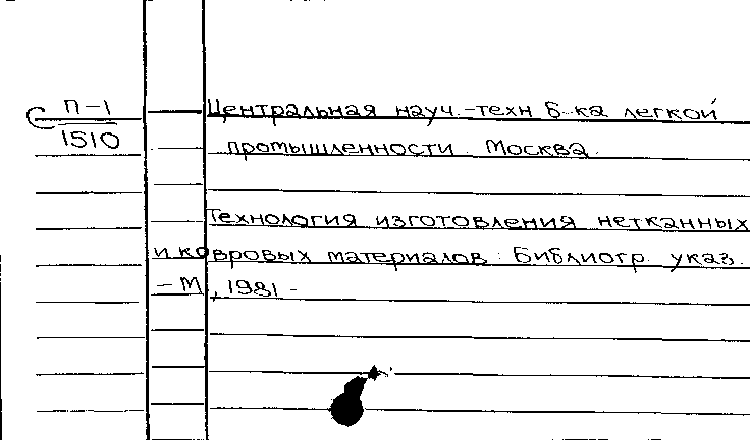 С П-1
1510
Центральная науч.-техн б-ка легкой
промышленности. Москва.
Технология изготовления нетканных
и ковровых материалов: Библиогр. указ.
- М, 1981 -